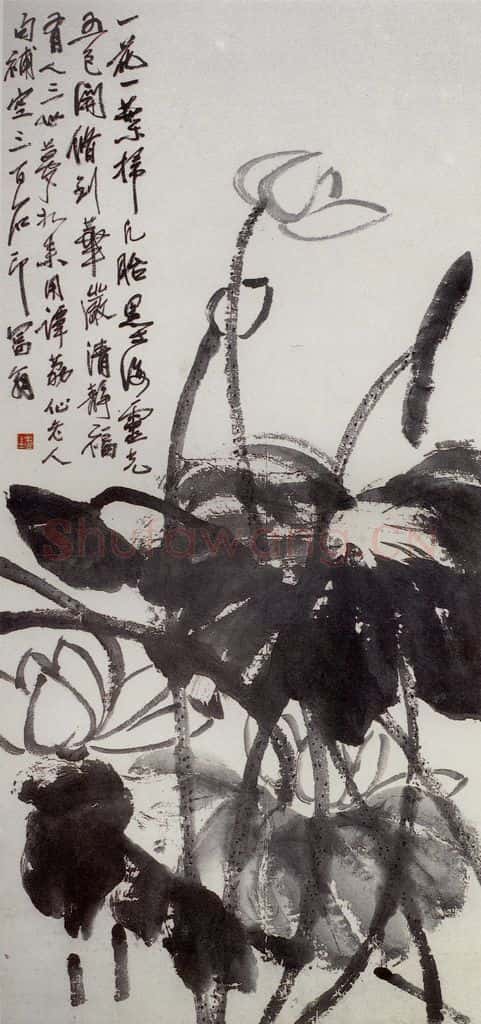 一花一葉掃凡胎墨海靈光
五色開修到華嚴清靜福
有人三世夢如來用譚荔仙老人
句補空三百石印富翁
shufawang.cn